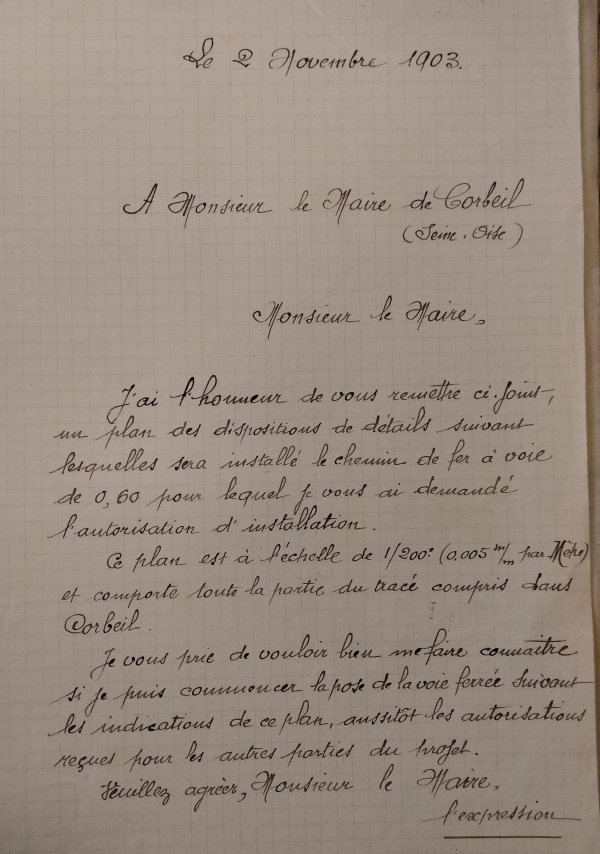 Le 2 Novembre 1903.
A Monsieur le Maire de Corbeil
(Seine. Oise)
Monsieur le Maire,
J'ai l'honneur de vous remettre ci-joint,
un plan des dispositions de détails suivant
lesquelles sera installé le chemin de fer à voie
de 0,60 pour lequel je vous ai demandé
l'autorisation d'installation.
Ce plan est à l'échelle de 1/200e (0.005 m/m par Mètre)
et comporte toute la partie du tracé compris dans
Corbeil.
Je vous prie de vouloir bien me faire connaître
si je puis commencer la pose de la voie ferrée suivant
les indications de ce plan, aussitôt les autorisations
reçues pour les autres parties du projet.
Veuillez agréer, Monsieur le Maire,
l'expression